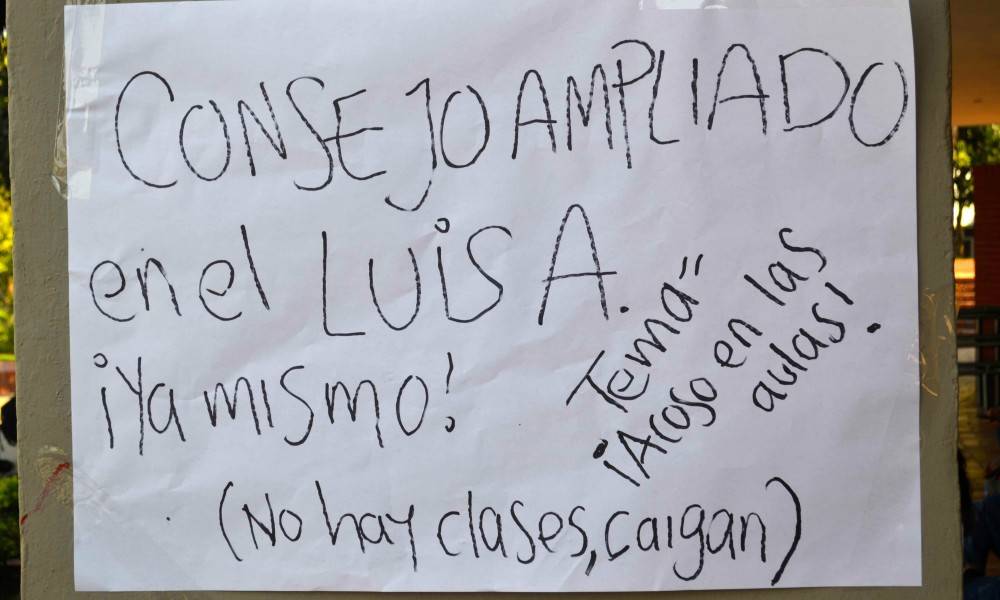 CONSEJO AMPLIADO
en el LUIS A.
¡Ya mismo!
Tema=
¡Acoso en las
aulas!
(No hay clases, caigan)